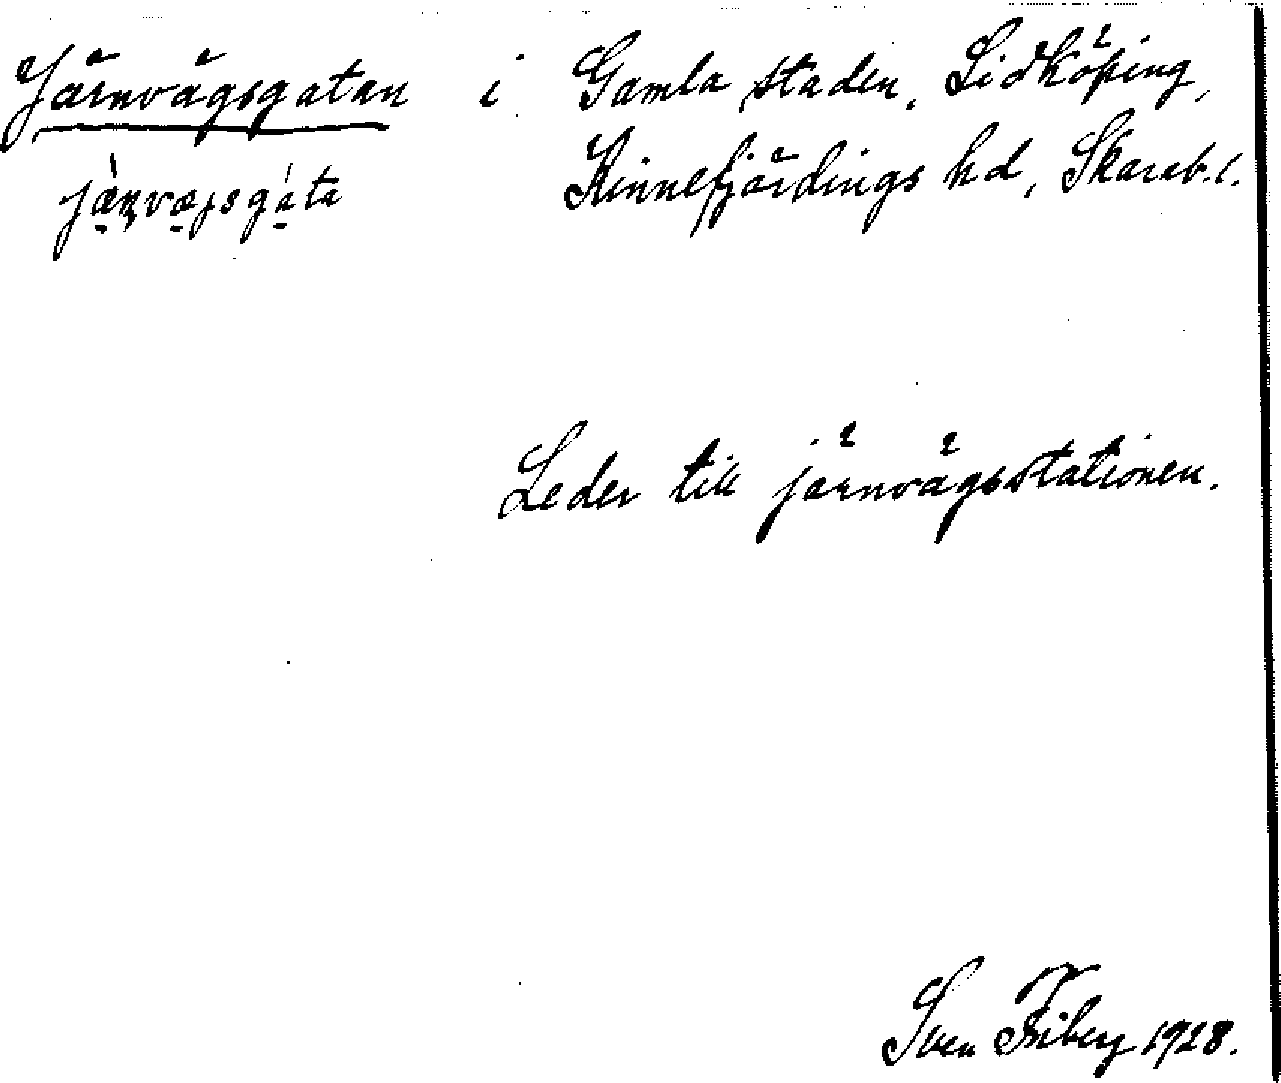 Järnvägsgatan i Gamla staden, Lidköping,
Kinnefjärdings hd, Skarab. l.
Leder till järnvägsstationen.
Sven Friberg 1928.